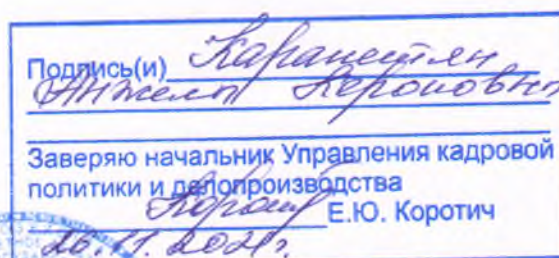 Подпись(и) Карапетян
Анжелы Хероповны
Заверяю начальник Управления кадровой
политики и делопроизводства
Е.Ю. Коротич
26.11.2021г.